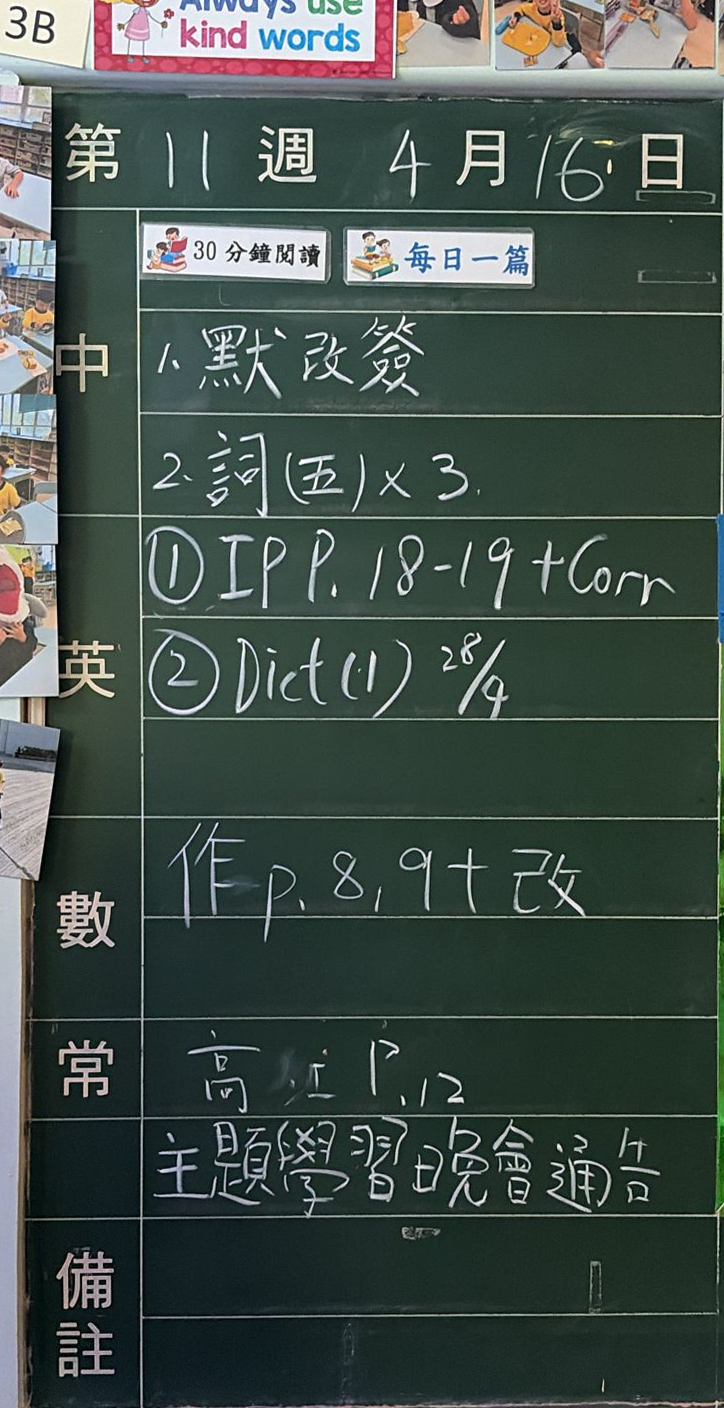 3B
Always use
kind words
第 11 週 4 月 16 日
30 分鐘閱讀 每日一篇
中
1. 默改簽
2. 詞(五)x 3.
英
① IP P. 18-19 +Corr
② Dict (1) 28/4
數
作 p. 8, 9 + 改
常
高 P.12
主題學習晚會通告
備註